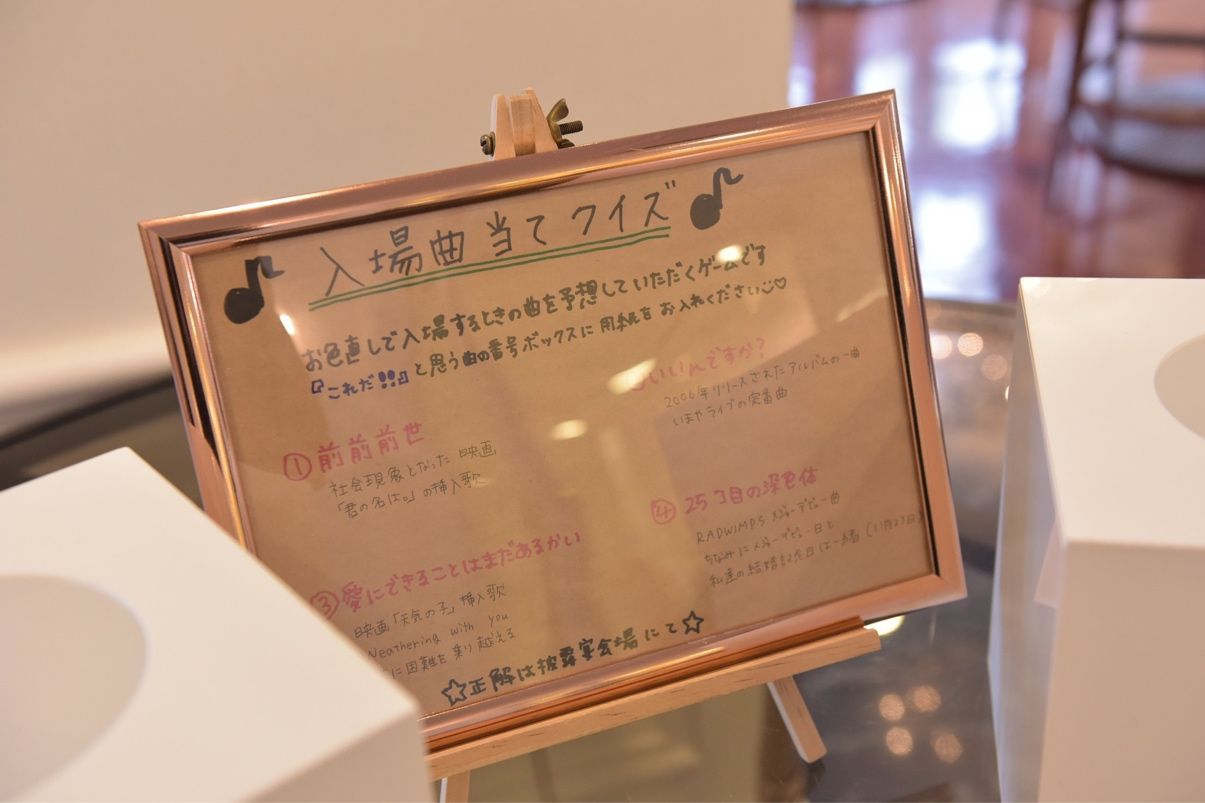 入場曲当てクイズ
お色直しで入場するときの曲を予想していただくゲームです
『これだ!!』と思う曲の番号ボックスに用紙をお入れください♡
①前前前世
社会現象となった映画
「君の名は。」の挿入歌
いいんですか?
2006年リリースされたアルバムの一曲
いまやライブの定番曲
③愛にできることはまだあるかい
映画「天気の子」挿入歌
Weathering with you
に困難を乗り越える
④25コ目の染色体
RADWIMPS メジャーデビュー曲
ちなみにメジャーデビュー日と
私達の結婚記念日は一緒(11月23日)
☆正解は披露宴会場にて☆